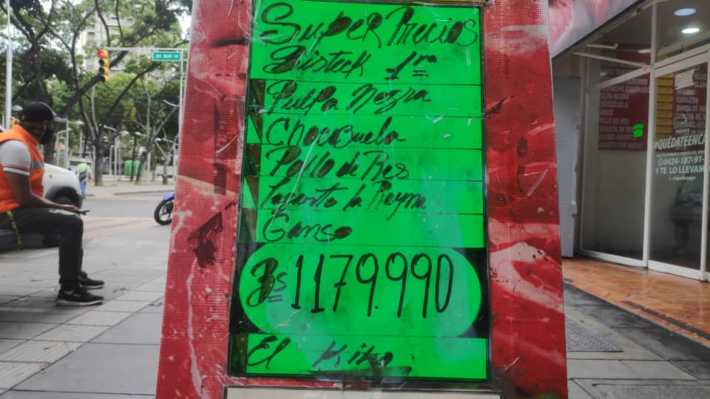 Super Precios
Bisteck 1ra
Pulpa Negra
Chocozuela
Pollo de Res
Lagarto la Reyna
Ganso
Bs 1179.990
El Kilo
#QUÉDATEENCASA
Y TE LO LLEVAMOS